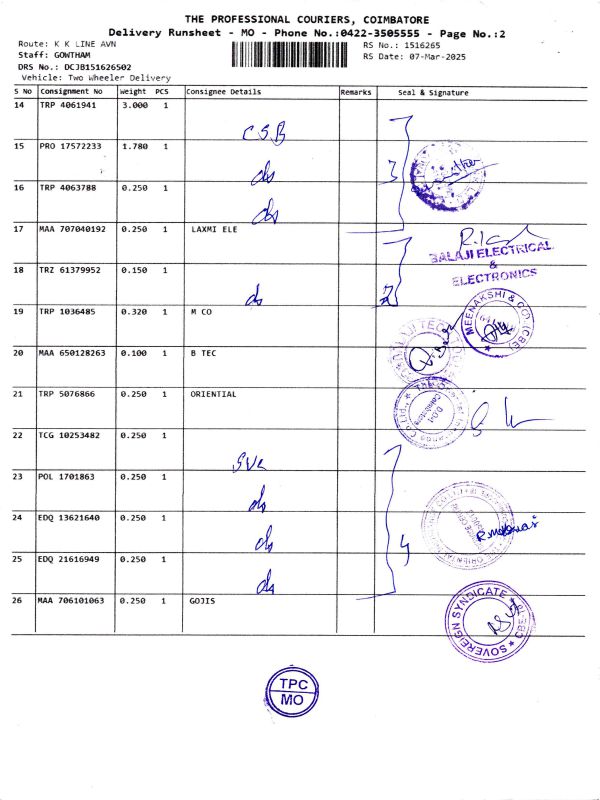 THE PROFESSIONAL COURIERS, COIMBATORE
Delivery Runsheet - MO - Phone No.:0422-3505555 - Page No.:2
Route: K K LINE AVN
RS No.: 1516265
Staff: GOWTHAM
RS Date: 07-Mar-2025
DRS No.: DCJB151626502
Vehicle: Two Wheeler Delivery
S No Consignment No Weight PCS Consignee Details Remarks Seal & Signature
14 TRP 4061941 3.000 1
CSB
15 PRO 17572233 1.780 1
do
3
16 TRP 4063788 0.250 1
do
17 MAA 707040192 0.250 1 LAXMI ELE
BALAJI ELECTRICAL
&
ELECTRONICS
18 TRZ 61379952 0.150 1
do
2
19 TRP 1036485 0.320 1 M CO
MEENAKSHI & CO. (CBE)
20 MAA 650128263 0.100 1 B TEC
21 TRP 5076866 0.250 1 ORIENTIAL
22 TCG 10253482 0.250 1
SVC
23 POL 1701863 0.250 1
do
24 EDQ 13621640 0.250 1
do
4
25 EDQ 21616949 0.250 1
do
26 MAA 706101063 0.250 1 GOJIS
SOVEREIGN SYNDICATE
TPC
MO